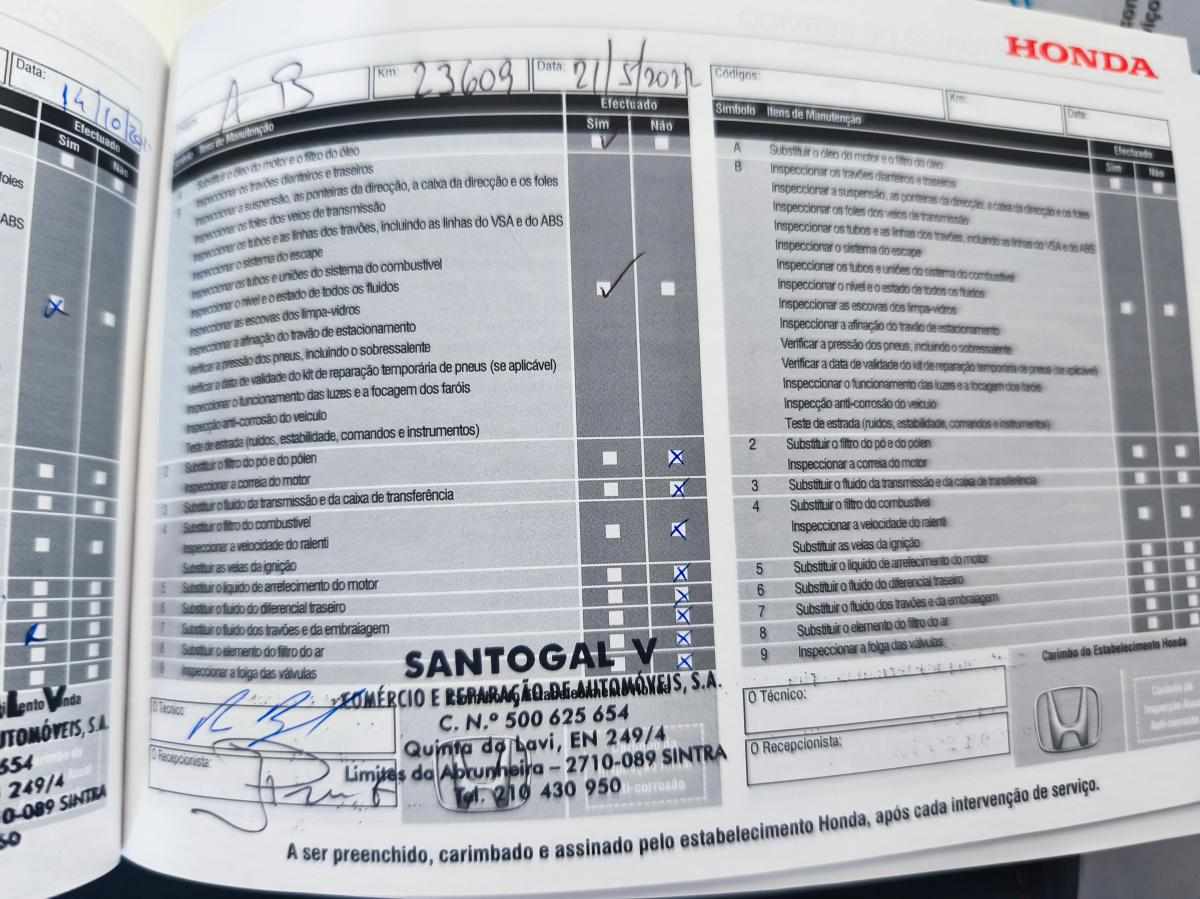 Data:
14/10/20
Efectuado
Sim
Não
foles
ABS
L V
UTOMÓVEIS, S.A.
654
249/4
0-089 SINTRA
50
HONDA
A B
Km: 23609
Data: 21/5/2022
Itens de Manutenção
Efectuado
Sim
Não
Substituir o óleo do motor e o filtro do óleo
Inspeccionar os travões dianteiros e traseiros
Inspeccionar a suspensão, as ponteiras da direcção, a caixa da direcção e os foles
Inspeccionar os foles dos veios de transmissão
Inspeccionar os tubos e as linhas dos travões, incluindo as linhas do VSA e do ABS
Inspeccionar o sistema do escape
Inspeccionar os tubos e uniões do sistema do combustível
Inspeccionar o nível e o estado de todos os fluidos
Inspeccionar as escovas dos limpa-vidros
Inspeccionar a afinação do travão de estacionamento
Verificar a pressão dos pneus, incluindo o sobressalente
Verificar a data de validade do kit de reparação temporária de pneus (se aplicável)
Inspeccionar o funcionamento das luzes e a focagem dos faróis
Inspecção anti-corrosão do veículo
Teste de estrada (ruídos, estabilidade, comandos e instrumentos)
2 Substituir o filtro do pó e do pólen
Inspeccionar a correia do motor
3 Substituir o fluido da transmissão e da caixa de transferência
4 Substituir o filtro do combustível
Inspeccionar a velocidade do ralenti
Substituir as velas da ignição
5 Substituir o líquido de arrefecimento do motor
6 Substituir o fluido do diferencial traseiro
7 Substituir o fluido dos travões e da embraiagem
8 Substituir o elemento do filtro do ar
9 Inspeccionar a folga das válvulas
O Técnico:
O Recepcionista:
SANTOGAL V
COMÉRCIO E REPARAÇÃO DE AUTOMÓVEIS, S.A.
C. N.º 500 625 654
Quinta do Lavi, EN 249/4
Limites da Abrunheira – 2710-089 SINTRA
Tel. 210 430 950
Códigos:
Km:
Data:
Símbolo Itens de Manutenção
Efectuado
Sim
Não
A Substituir o óleo do motor e o filtro do óleo
B Inspeccionar os travões dianteiros e traseiros
Inspeccionar a suspensão, as ponteiras da direcção, a caixa da direcção e os foles
Inspeccionar os foles dos veios de transmissão
Inspeccionar os tubos e as linhas dos travões, incluindo as linhas do VSA e do ABS
Inspeccionar o sistema do escape
Inspeccionar os tubos e uniões do sistema do combustível
Inspeccionar o nível e o estado de todos os fluidos
Inspeccionar as escovas dos limpa-vidros
Inspeccionar a afinação do travão de estacionamento
Verificar a pressão dos pneus, incluindo o sobressalente
Verificar a data de validade do kit de reparação temporária de pneus (se aplicável)
Inspeccionar o funcionamento das luzes e a focagem dos faróis
Inspecção anti-corrosão do veículo
Teste de estrada (ruídos, estabilidade, comandos e instrumentos)
2 Substituir o filtro do pó e do pólen
Inspeccionar a correia do motor
3 Substituir o fluido da transmissão e da caixa de transferência
4 Substituir o filtro do combustível
Inspeccionar a velocidade do ralenti
Substituir as velas da ignição
5 Substituir o líquido de arrefecimento do motor
6 Substituir o fluido do diferencial traseiro
7 Substituir o fluido dos travões e da embraiagem
8 Substituir o elemento do filtro do ar
9 Inspeccionar a folga das válvulas
O Técnico:
O Recepcionista:
Carimbo do Estabelecimento Honda
A ser preenchido, carimbado e assinado pelo estabelecimento Honda, após cada intervenção de serviço.